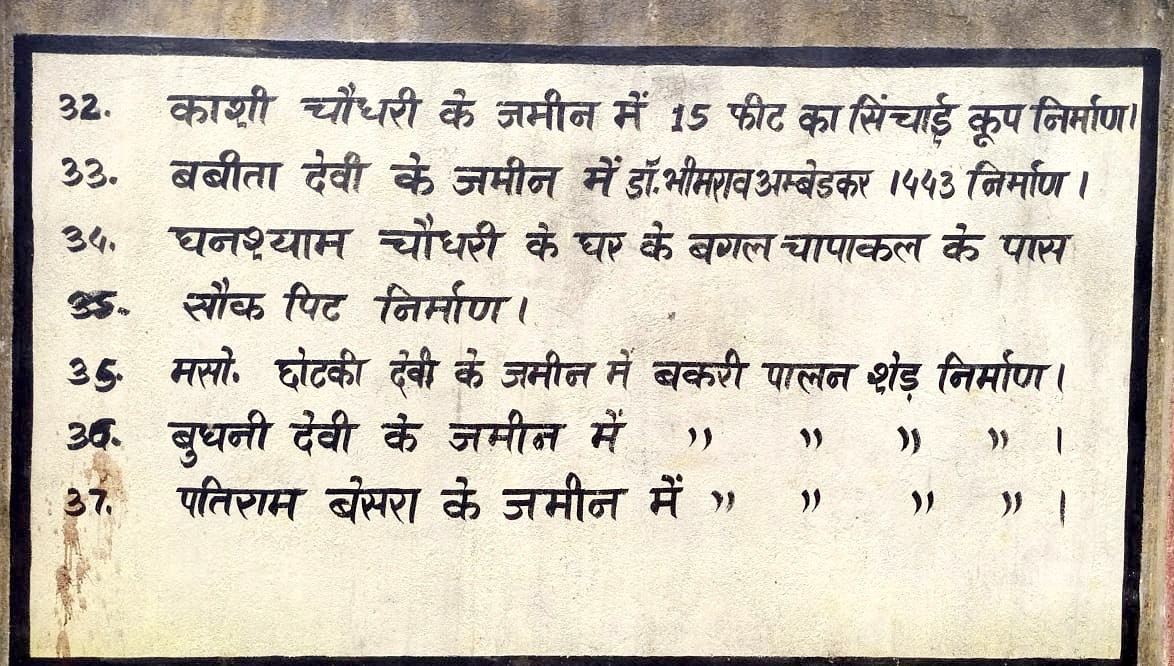 32. काशी चौधरी के जमीन में 15 फीट का सिंचाई कूप निर्माण।
33. बबीता देवी के जमीन में डॉ. भीमराव अम्बेडकर ।५५3 निर्माण।
34. घनश्याम चौधरी के घर के बगल चापाकल के पास
35. सौक पिट निर्माण।
35. मसो. छोटकी देवी के जमीन में बकरी पालन शेड़ निर्माण।
36. बुधनी देवी के जमीन में ,, ,, ,, ,, ।
37. पतिराम बेसरा के जमीन में ,, ,, ,, ,, ।